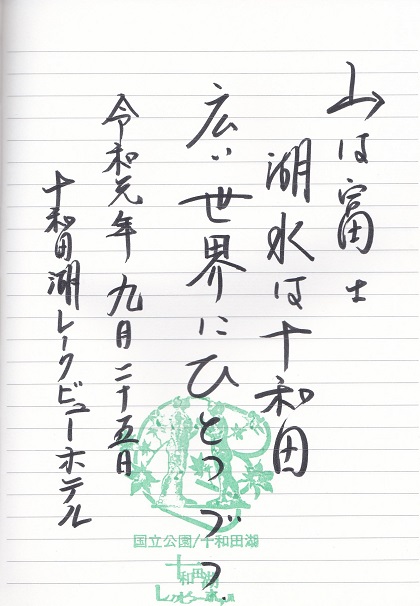 山は富士
湖水は十和田
広い世界にひとつづつ
令和元年九月二十五日
十和田湖レークビューホテル
国立公園/十和田湖
十和田湖